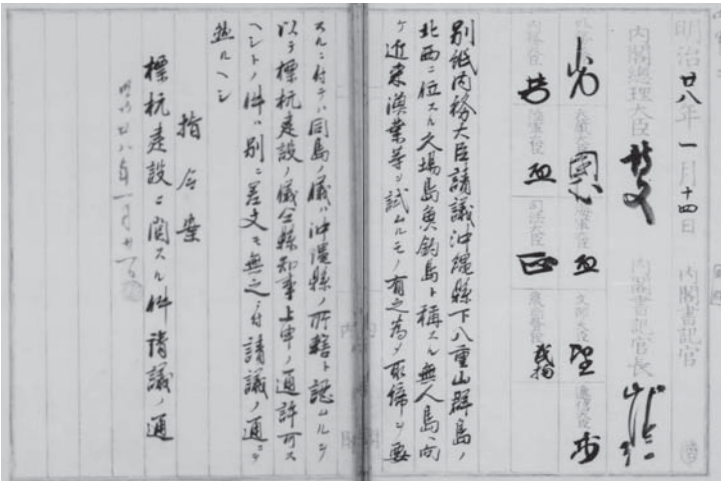 明治廿八年一月十四日
内閣總理大臣
内閣書記官長
内閣書記官
大藏大臣
海軍大臣
文部大臣
遞信大臣
内務大臣
陸軍大臣
司法大臣
別紙内務大臣請議沖縄縣下八重山群島ノ
北西ニ位スル久場島魚釣島ト稱スル無人島ヘ向
ケ近来漁業等ヲ試ムルモノ有之為メ取締ヲ要
スルニ付テハ同島ノ儀ハ沖縄縣ノ所轄ト認ムルヲ
以テ標杭建設ノ儀仝縣知事上申ノ通許可ス
ヘシトノ件ハ別ニ差支モ無之ニ付請議ノ通ニテ
然ルヘシ
指令案
標杭建設ニ関スル件請議ノ通
明治廿八年一月廿一日